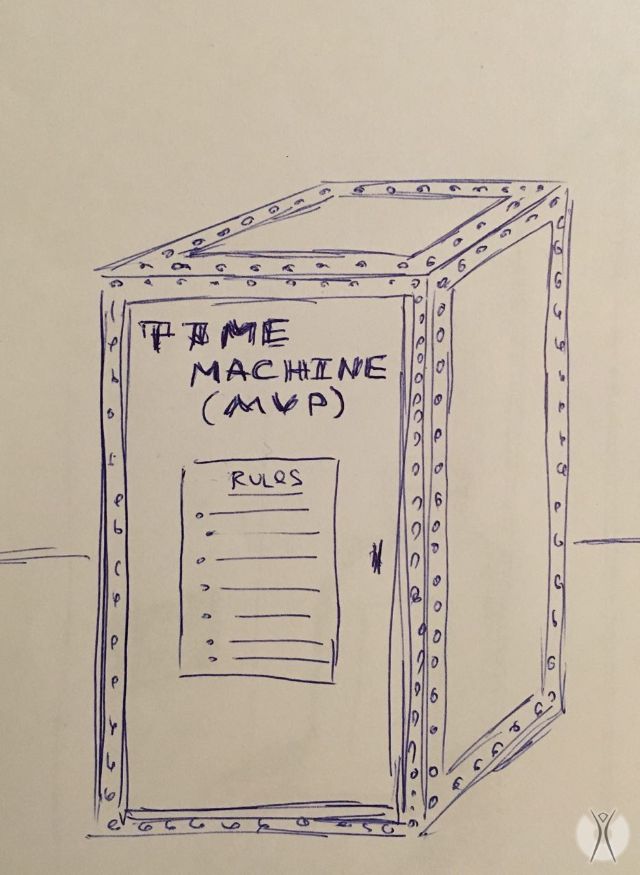 TIME
MACHINE
(MVP)
RULES